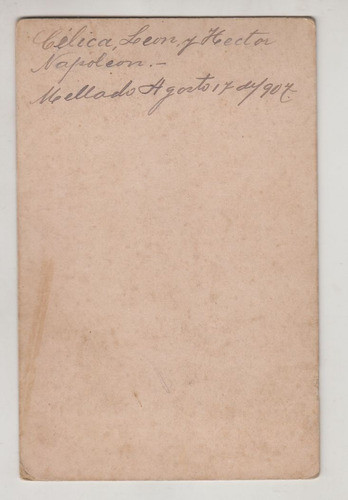 Célica, Leon, y Hector
Napoleon.—
Mellado Agosto 17 de/907.